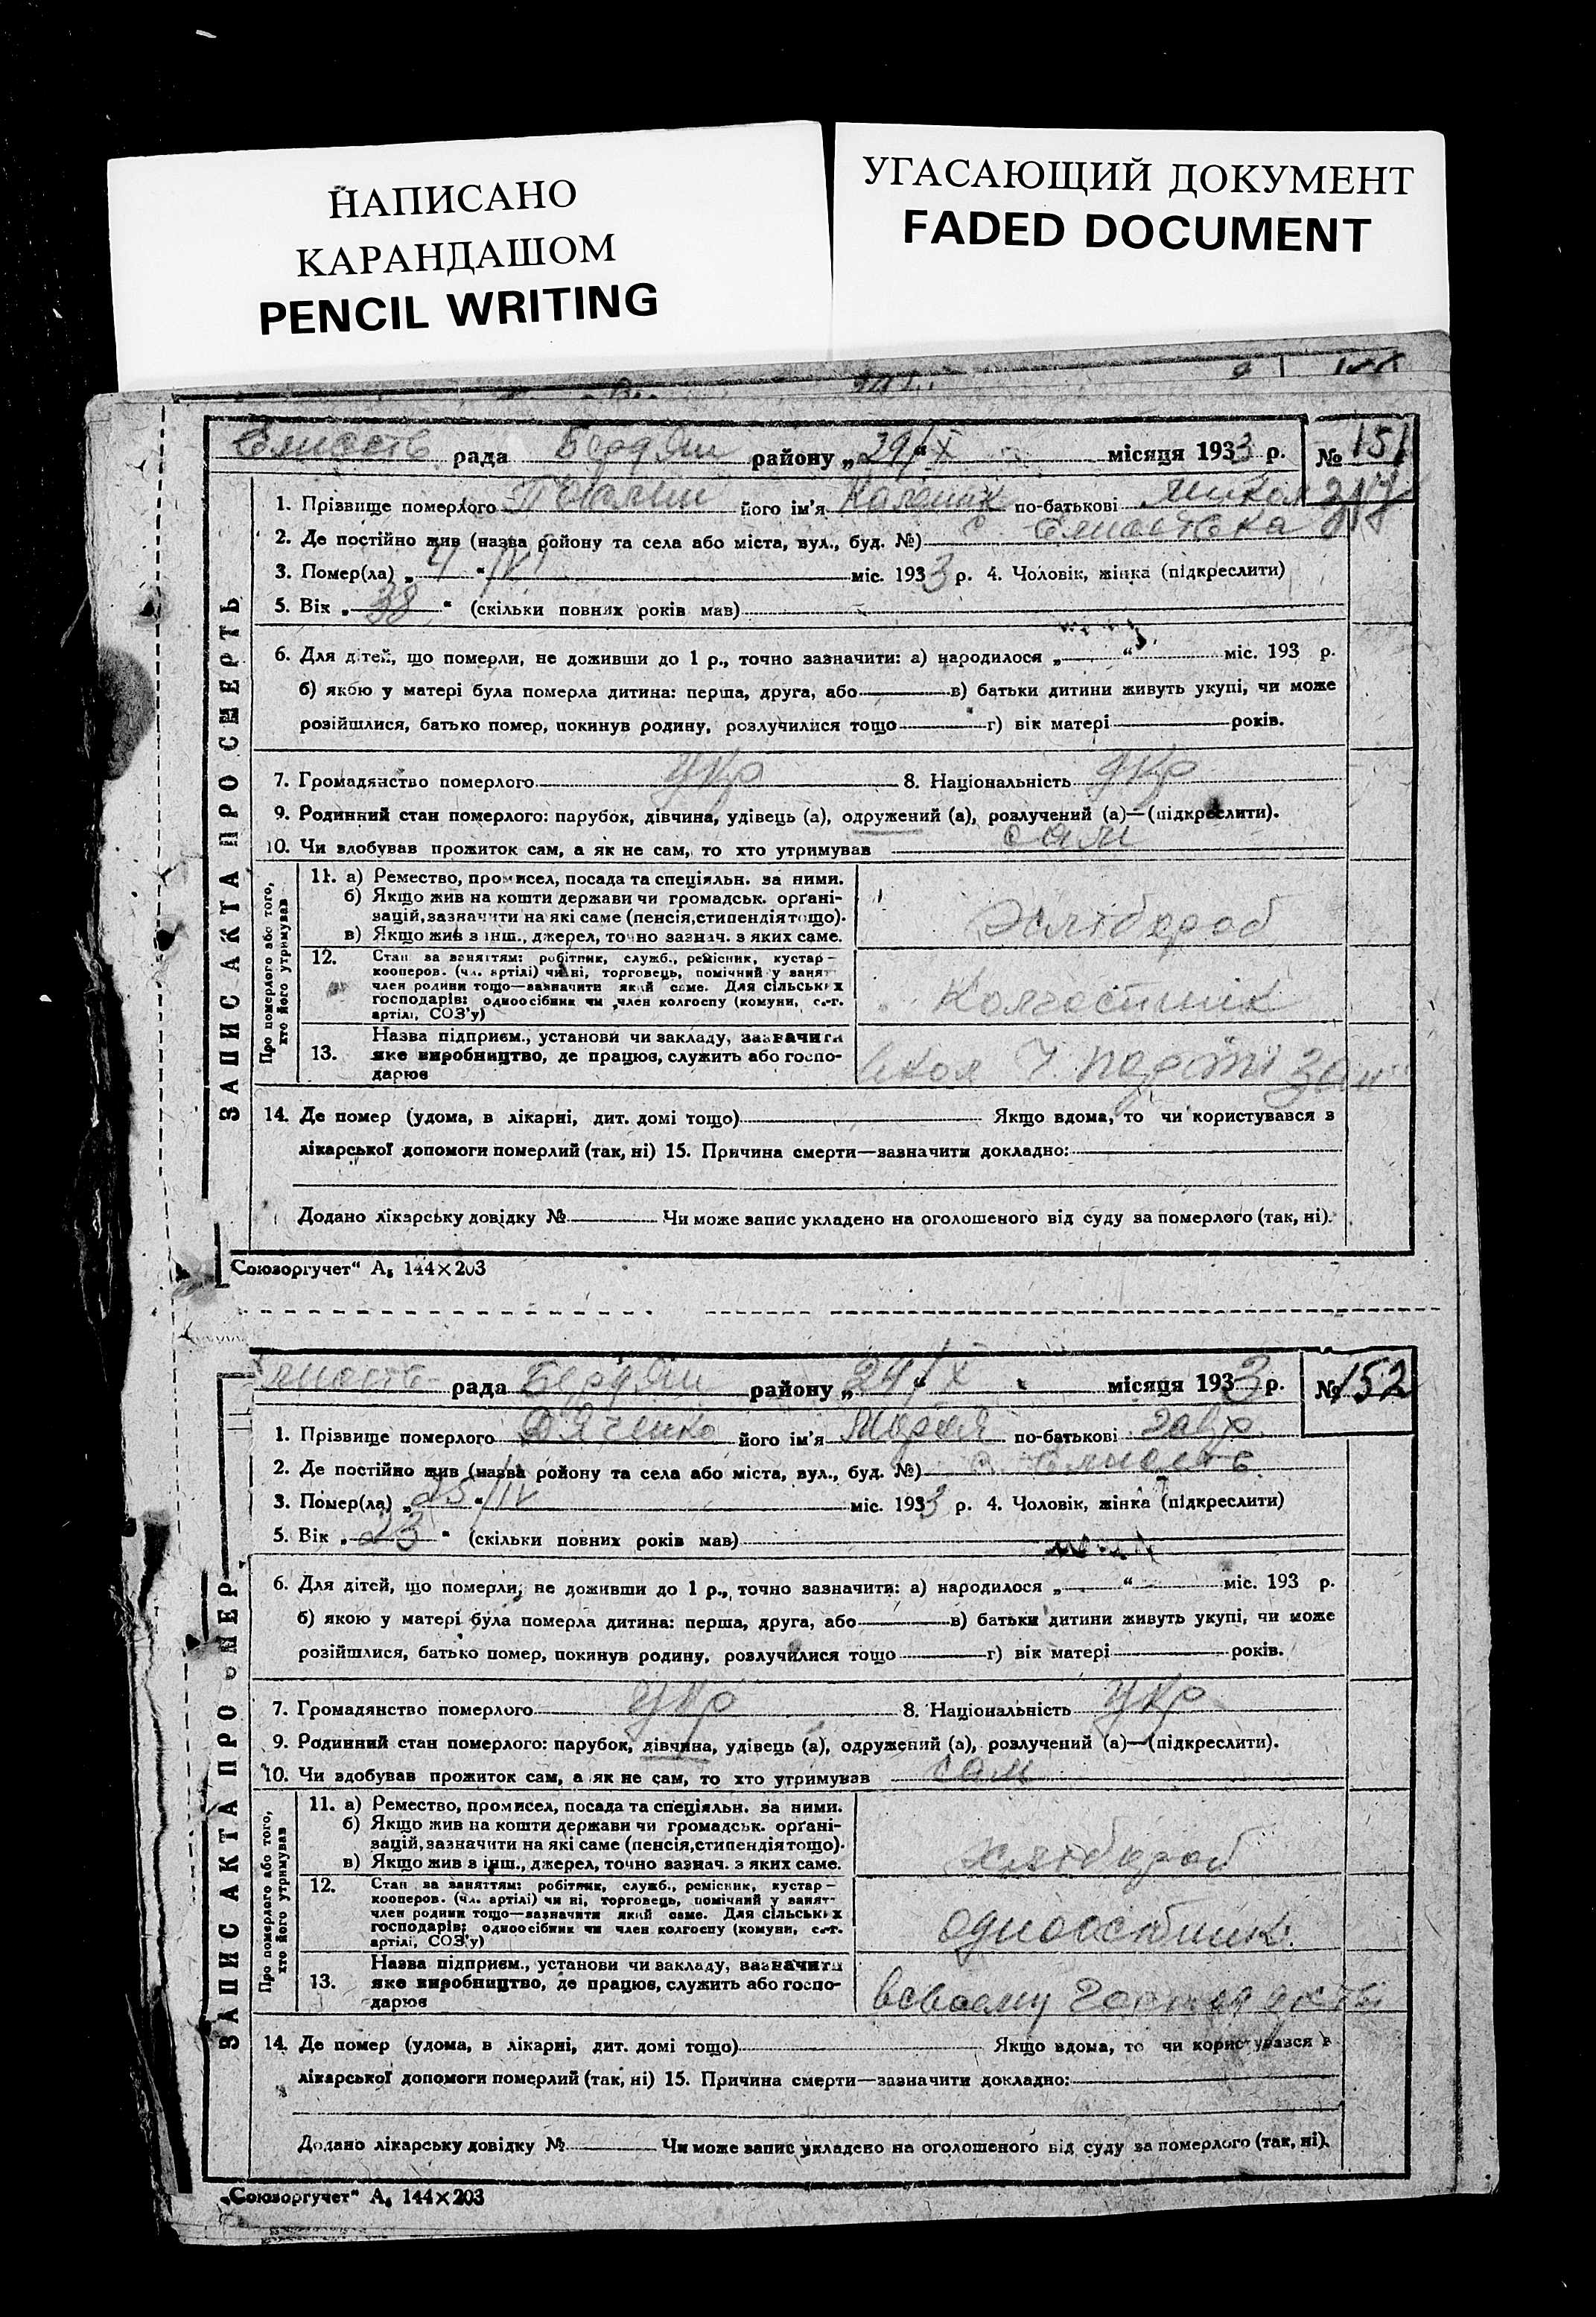 НАПИСАНО
КАРАНДАШОМ
PENCIL WRITING
УГАСАЮЩИЙ ДОКУМЕНТ
FADED DOCUMENT
рада Бердян району „29/X“ місяця 1933 р. № 151
1. Прізвище померлого його ім'я по-батькові
2. Де постійно жив (назва району та села або міста, вул., буд. №) с.
3. Помер(ла) „4“/IV міс. 1933 р. 4. Чоловік, жінка (підкреслити)
5. Вік „38“ (скільки повних років мав)
6. Для дітей, що померли, не доживши до 1 р., точно зазначити: а) народилося „ “ міс. 193 р.
б) якою у матері була померла дитина: перша, друга, або в) батьки дитини живуть укупі, чи може
розійшлися, батько помер, покинув родину, розлучилися тощо г) вік матері років.
7. Громадянство померлого укр 8. Національність укр
9. Родинний стан померлого: парубок, дівчина, удівець (а), одружений (а), розлучений (а)—(підкреслити).
10. Чи здобував прожиток сам, а як не сам, то хто утримував сам
ЗАПИС АКТА ПРО СМЕРТЬ
Про померлого або того,
хто його утримував
11. а) Ремество, промисел, посада та спеціяльн. за ними.
б) Якщо жив на кошти держави чи громадськ. орґані-
зацій, зазначити на які саме (пенсія, стипендія тощо).
в) Якщо жив з інш., джерел, точно зазнач. з яких саме.
хлібороб
12. Стан за заняттям: робітник, служб., ремісник, кустар—
кооперов. (чл. артілі) чи ні, торговець, помічний у занят-
член родини тощо—зазначити який саме. Для сільських
господарів: одноосібник чи член колгоспу (комуни, с.-г.
артілі, СОЗ'у)
Колгоспник
13. Назва підприєм., установи чи закладу, зазначити
яке виробництво, де працює, служить або госпо-
дарює
14. Де помер (удома, в лікарні, дит. домі тощо) Якщо вдома, то чи користувався з
лікарської допомоги померлий (так, ні) 15. Причина смерти—зазначити докладно:
Додано лікарську довідку № Чи може запис укладено на оголошеного від суду за померлого (так, ні).
„Союзоргучет“ А5 144×203
рада Бердян району „24/X“ місяця 1933 р. № 152
1. Прізвище померлого Дяченко його ім'я Марая по-батькові Завр
2. Де постійно жив (назва району та села або міста, вул., буд. №)
3. Помер(ла) „25“/IV міс. 1933 р. 4. Чоловік, жінка (підкреслити)
5. Вік „23“ (скільки повних років мав)
6. Для дітей, що померли, не доживши до 1 р., точно зазначити: а) народилося „ “ міс. 193 р.
б) якою у матері була померла дитина: перша, друга, або в) батьки дитини живуть укупі, чи може
розійшлися, батько помер, покинув родину, розлучилися тощо г) вік матері років.
7. Громадянство померлого укр 8. Національність укр
9. Родинний стан померлого: парубок, дівчина, удівець (а), одружений (а), розлучений (а)—(підкреслити).
10. Чи здобував прожиток сам, а як не сам, то хто утримував сам
ЗАПИС АКТА ПРО СМЕР
Про померлого або того,
хто його утримував
11. а) Ремество, промисел, посада та спеціяльн. за ними.
б) Якщо жив на кошти держави чи громадськ. орґані-
зацій, зазначити на які саме (пенсія, стипендія тощо).
в) Якщо жив з інш., джерел, точно зазнач. з яких саме.
хлібороб
12. Стан за заняттям: робітник, служб., ремісник, кустар—
кооперов. (чл. артілі) чи ні, торговець, помічний у занят-
член родини тощо—зазначити який саме. Для сільських
господарів: одноосібник чи член колгоспу (комуни, с.-г.
артілі, СОЗ'у)
одноосібник
13. Назва підприєм., установи чи закладу, зазначити
яке виробництво, де працює, служить або госпо-
дарює
всвоему
14. Де помер (удома, в лікарні, дит. домі тощо) Якщо вдома, то чи користувався в
лікарської допомоги померлий (так, ні) 15. Причина смерти—зазначити докладно:
Додано лікарську довідку № Чи може запис укладено на оголошеного від суду за померлого (так, ні).
„Союзоргучет“ А5 144×203